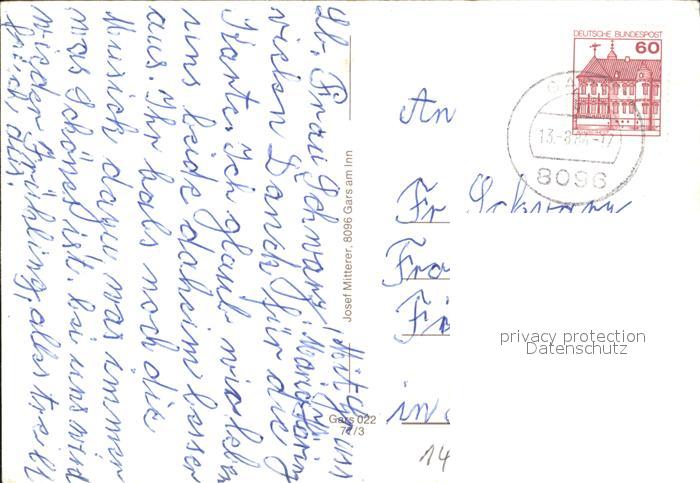 Lb. Frau Schwarz!
vielen Danck für die
Karte. Ich glaub wir leben
uns beide daheim besser
aus. Ihr habs noch die
Musick dazu was immer
was Schönes ist. bei uns wird
wieder Frühling, alles treibt
Mit Gruss
Josef Mitterer, 8096 Gars am Inn
Gars 022
71/3
DEUTSCHE BUNDESPOST
60
8096
An
Fr Schwarz
in
14
privacy protection
Datenschutz